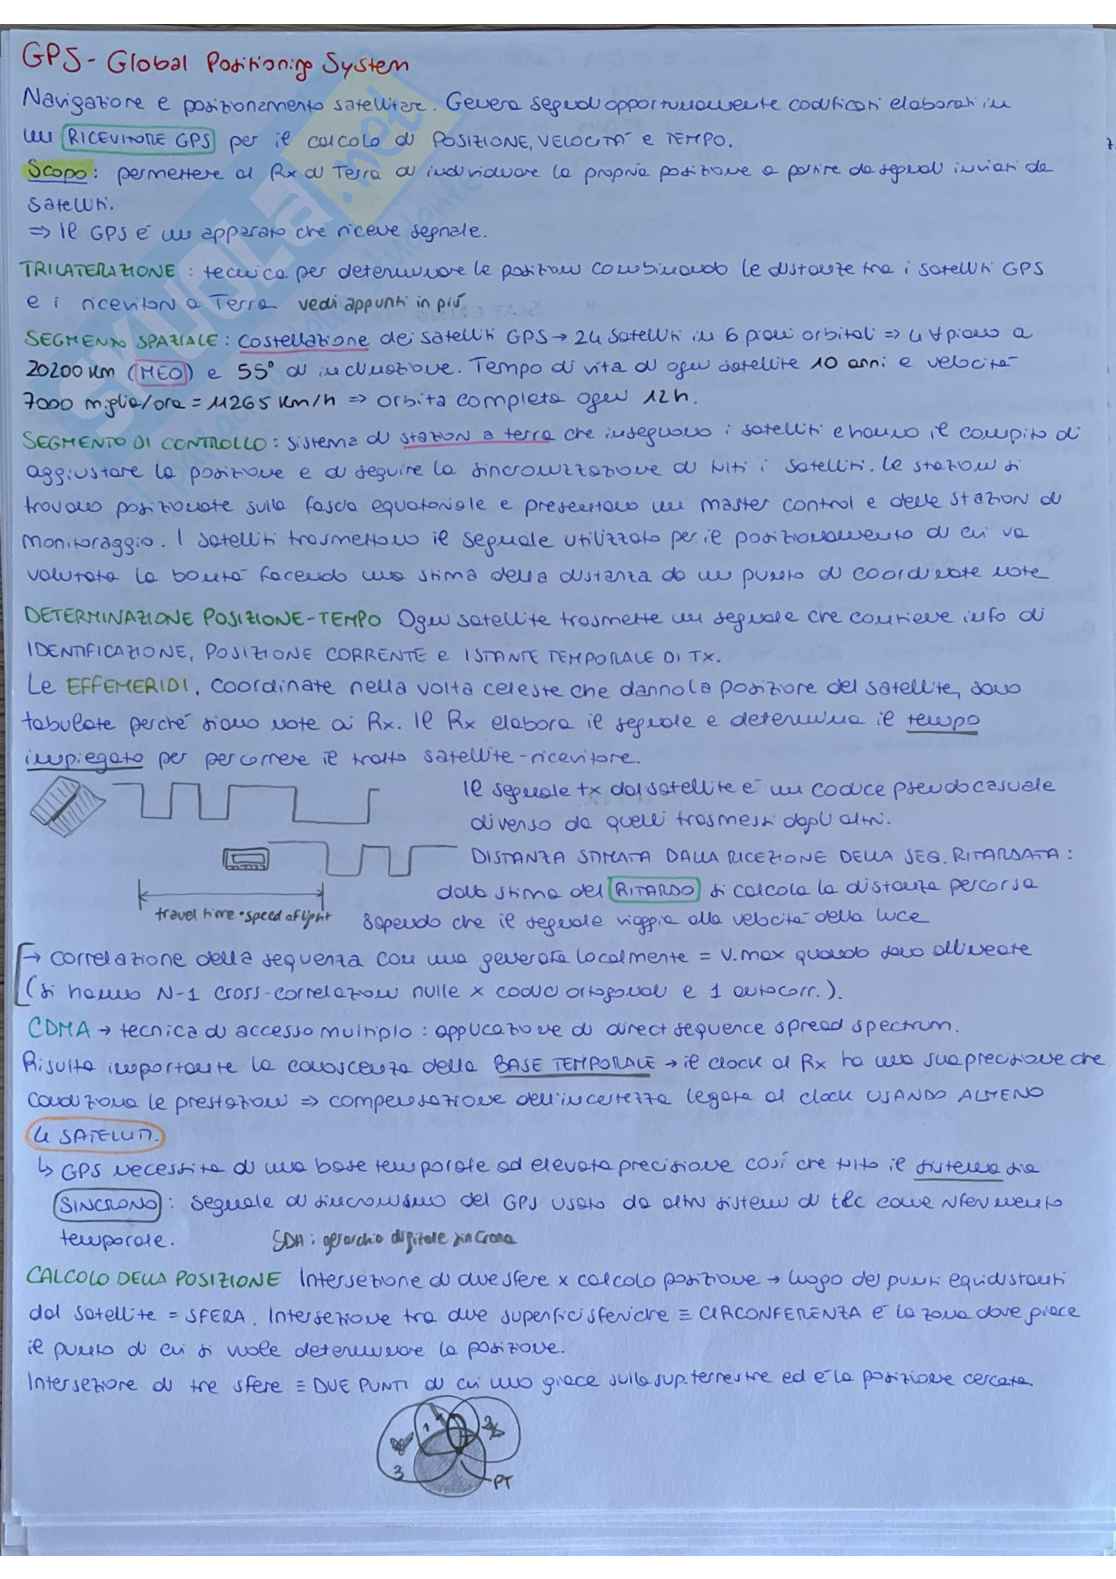 GPS - Global Positioning System
Navigazione e posizionamento satellitare. Genera segnali opportunamente codificati elaborati in
un RICEVITORE GPS per il calcolo di POSIZIONE, VELOCITÀ e TEMPO.
Scopo: permettere al Rx di Terra di individuare la propria posizione a partire da segnali inviati da
satelliti.
⇒ Il GPS è un apparato che riceve segnale.
TRILATERAZIONE: tecnica per determinare le posizioni combinando le distanze tra i satelliti GPS
e i ricevitori a Terra vedi appunti in più
SEGMENTO SPAZIALE: Costellazione dei satelliti GPS → 24 satelliti in 6 piani orbitali ⇒ 4 ∀ piano a
20200 km (MEO) e 55° di inclinazione. Tempo di vita di ogni satellite 10 anni e velocità
7000 miglia/ora = 11265 km/h ⇒ orbita completa ogni 12h.
SEGMENTO DI CONTROLLO: sistema di stazioni a terra che inseguono i satelliti e hanno il compito di
aggiustare la posizione e di seguire la sincronizzazione di tutti i satelliti. Le stazioni si
trovano posizionate sulla fascia equatoriale e presentano un master control e delle stazioni di
monitoraggio. I satelliti trasmettono il segnale utilizzato per il posizionamento di cui va
valutata la bontà facendo una stima della distanza da un punto di coordinate note
DETERMINAZIONE POSIZIONE-TEMPO Ogni satellite trasmette un segnale che contiene info di
IDENTIFICAZIONE, POSIZIONE CORRENTE e ISTANTE TEMPORALE DI TX.
Le EFFEMERIDI, coordinate nella volta celeste che danno la posizione del satellite, sono
tabulate perché siano note ai Rx. Il Rx elabora il segnale e determina il tempo
impiegato per percorrere il tratto satellite-ricevitore.
Il segnale tx dal satellite è un codice pseudocasuale
diverso da quelli trasmessi dagli altri.
DISTANZA STIMATA DALLA RICEZIONE DELLA SEQ. RITARDATA:
dalla stima del RITARDO si calcola la distanza percorsa
travel time • speed of light
sapendo che il segnale viaggia alla velocità della luce
→ correlazione della sequenza con una generata localmente = V.max quando sono allineate
(si hanno N-1 cross-correlazioni nulle x codici ortogonali e 1 autocorr.).
CDMA → tecnica di accesso multiplo: applicazione di direct sequence spread spectrum.
Risulta importante la conoscenza della BASE TEMPORALE → il clock al Rx ha una sua precisione che
condiziona le prestazioni ⇒ compensazione dell'incertezza legata al clock USANDO ALMENO
4 SATELLITI.
↳ GPS necessita di una base temporale ad elevata precisione così che tutto il sistema sia
SINCRONO: segnale di sincronismo del GPS usato da altri sistemi di tlc come riferimento
temporale. SDH: gerarchia digitale sincrona
CALCOLO DELLA POSIZIONE Intersezione di due sfere x calcolo posizione → luogo dei punti equidistanti
dal satellite = SFERA. Intersezione tra due superfici sferiche ≡ CIRCONFERENZA è la zona dove giace
il punto di cui si vuole determinare la posizione.
Intersezione di tre sfere ≡ DUE PUNTI di cui uno giace sulla sup. terrestre ed è la posizione cercata.
1 2
3
PT